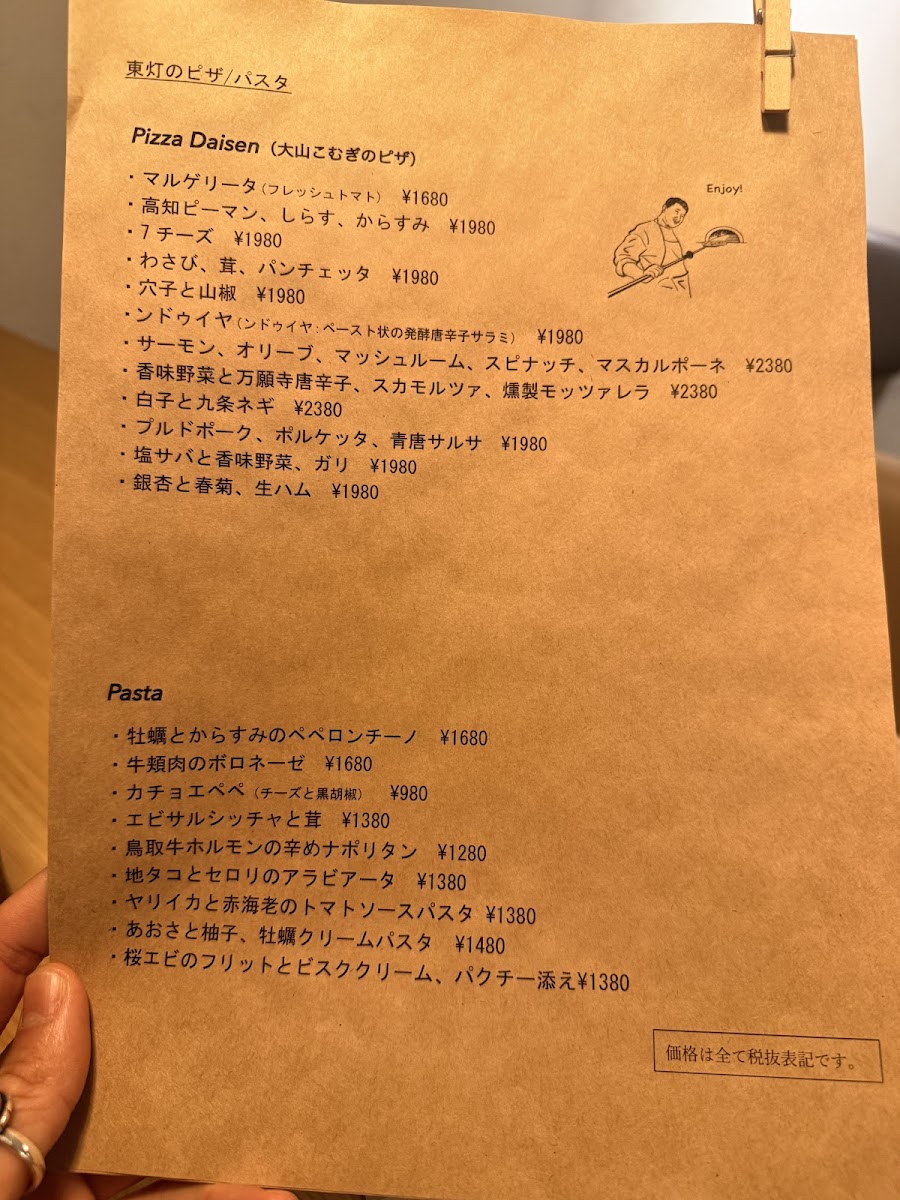 東灯のピザ/パスタ
Pizza Daisen（大山こむぎのピザ）
・マルゲリータ（フレッシュトマト） ¥1680
Enjoy!
・高知ピーマン、しらす、からすみ ¥1980
・7チーズ ¥1980
・わさび、茸、パンチェッタ ¥1980
・穴子と山椒 ¥1980
・ンドゥイヤ（ンドゥイヤ：ペースト状の発酵唐辛子サラミ） ¥1980
・サーモン、オリーブ、マッシュルーム、スピナッチ、マスカルポーネ ¥2380
・香味野菜と万願寺唐辛子、スカモルツァ、燻製モッツァレラ ¥2380
・白子と九条ネギ ¥2380
・プルドポーク、ポルケッタ、青唐サルサ ¥1980
・塩サバと香味野菜、ガリ ¥1980
・銀杏と春菊、生ハム ¥1980
Pasta
・牡蠣とからすみのペペロンチーノ ¥1680
・牛頬肉のボロネーゼ ¥1680
・カチョエペペ（チーズと黒胡椒） ¥980
・エビサルシッチャと茸 ¥1380
・鳥取牛ホルモンの辛めナポリタン ¥1280
・地タコとセロリのアラビアータ ¥1380
・ヤリイカと赤海老のトマトソースパスタ ¥1380
・あおさと柚子、牡蠣クリームパスタ ¥1480
・桜エビのフリットとビスククリーム、パクチー添え¥1380
価格は全て税抜表記です。